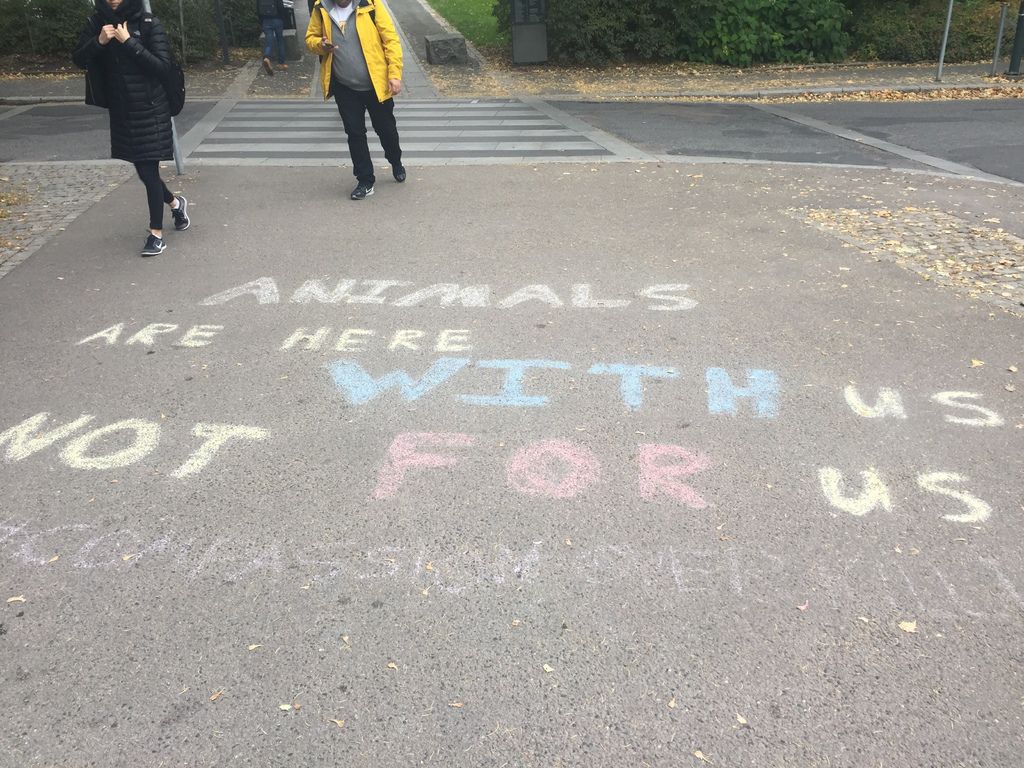 ANIMALS
ARE HERE WITH US
NOT FOR US